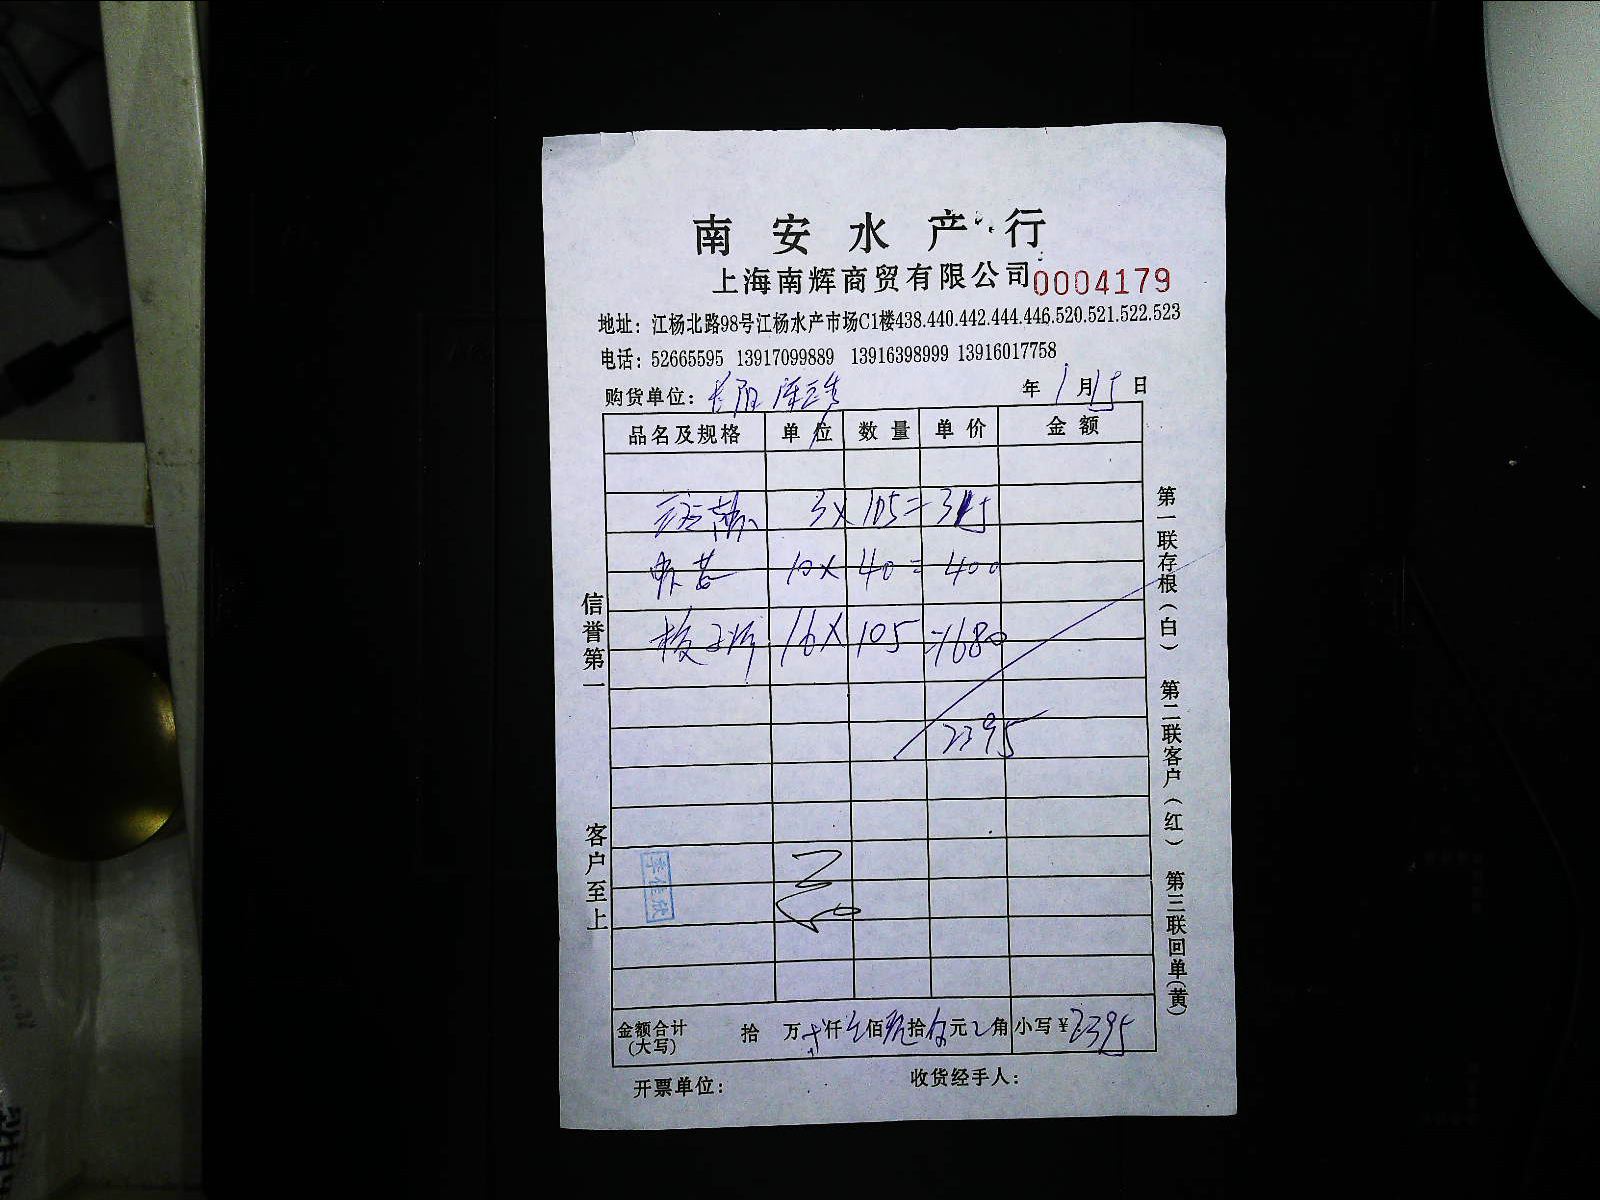 南安水产行
上海南辉商贸有限公司 0004179
地址：江杨北路98号江杨水产市场C1楼438.440.442.444.446.520.521.522.523
电话：52665595 13917099889 13916398999 13916017758
购货单位： 年 1月15日
品名及规格 单位 数量 单价 金额
3×105=315
10×40=400
16×105=1680
2395
金额合计(大写) 拾 万 仟 佰 拾 元 角 小写¥2395
开票单位： 收货经手人：
信誉第一
客户至上
李佳欣
第一联存根(白) 第二联客户(红) 第三联回单(黄)